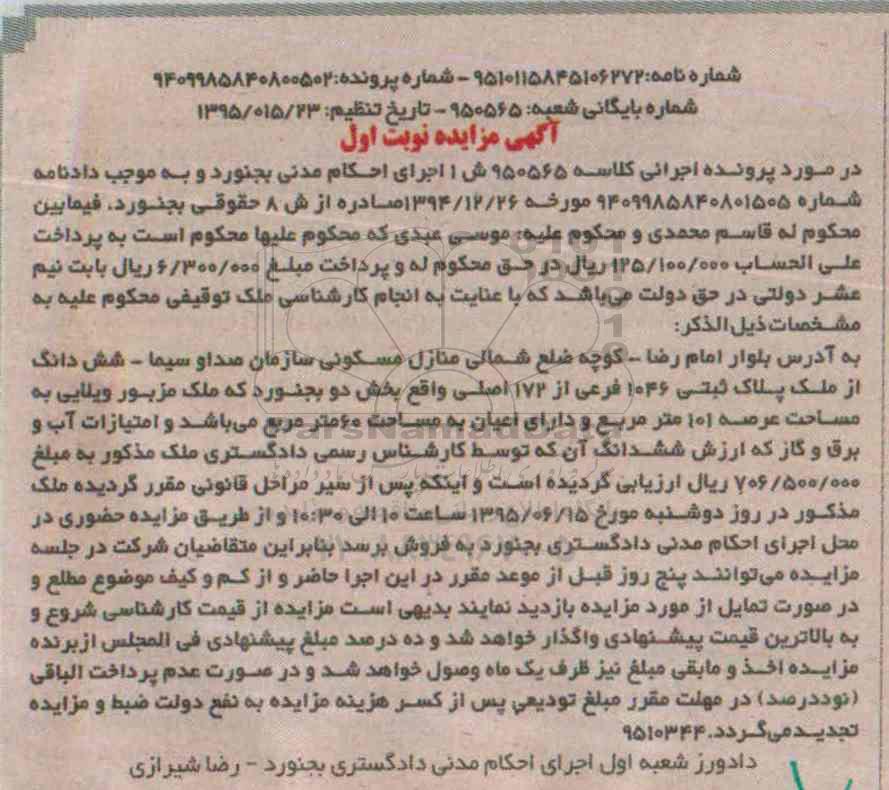 شماره نامه:۹۵۱۰۱۱۵۸۴۵۱۰۶۲۷۲ - شماره پرونده:۹۴۰۹۹۸۵۸۴۰۸۰۰۵۰۲
شماره بایگانی شعبه: ۹۵۰۵۶۵ - تاریخ تنظیم: ۱۳۹۵/۰۱۵/۲۳
آگهی مزایده نوبت اول
در مورد پرونده اجرائی کلاسه ۹۵۰۵۶۵ ش ۱ اجرای احکام مدنی بجنورد و به موجب دادنامه
شماره ۹۴۰۹۹۸۵۸۴۰۸۰۱۵۰۵ مورخه ۱۳۹۴/۱۲/۲۶صادره از ش ۸ حقوقی بجنورد. فیمابین
محکوم له قاسم محمدی و محکوم علیه: موسی عبدی که محکوم علیها محکوم است به پرداخت
علی الحساب ۱۲۵/۱۰۰/۰۰۰ ریال در حق محکوم له و پرداخت مبلغ ۶/۳۰۰/۰۰۰ ریال بابت نیم
عشر دولتی در حق دولت می‌باشد که با عنایت به انجام کارشناسی ملک توقیفی محکوم علیه به
مشخصات ذیل الذکر:
به آدرس بلوار امام رضا - کوچه ضلع شمالی منازل مسکونی سازمان صداو سیما - شش دانگ
از ملک پلاک ثبتی ۱۰۴۶ فرعی از ۱۷۲ اصلی واقع بخش دو بجنورد که ملک مزبور ویلایی به
مساحت عرصه ۱۰۱ متر مربع و دارای اعیان به مساحت ۶۰متر مربع می‌باشد و امتیازات آب و
برق و گاز که ارزش ششدانگ آن که توسط کارشناس رسمی دادگستری ملک مذکور به مبلغ
۷۰۶/۵۰۰/۰۰۰ ریال ارزیابی گردیده است و اینکه پس از سیر مراحل قانونی مقرر گردیده ملک
مذکور در روز دوشنبه مورخ ۱۳۹۵/۰۶/۱۵ ساعت ۱۰ الی ۱۰:۳۰ و از طریق مزایده حضوری در
محل اجرای احکام مدنی دادگستری بجنورد به فروش برسد بنابراین متقاضیان شرکت در جلسه
مزایده می‌توانند پنج روز قبل از موعد مقرر در این اجرا حاضر و از کم و کیف موضوع مطلع و
در صورت تمایل از مورد مزایده بازدید نمایند بدیهی است مزایده از قیمت کارشناسی شروع و
به بالاترین قیمت پیشنهادی واگذار خواهد شد و ده درصد مبلغ پیشنهادی فی المجلس ازبرنده
مزایده اخذ و مابقی مبلغ نیز ظرف یک ماه وصول خواهد شد و در صورت عدم پرداخت الباقی
(نوددرصد) در مهلت مقرر مبلغ تودیعی پس از کسر هزینه مزایده به نفع دولت ضبط و مزایده
تجدیدمی‌گردد.۹۵۱۰۳۴۴
دادورز شعبه اول اجرای احکام مدنی دادگستری بجنورد - رضا شیرازی
ParsNamadData